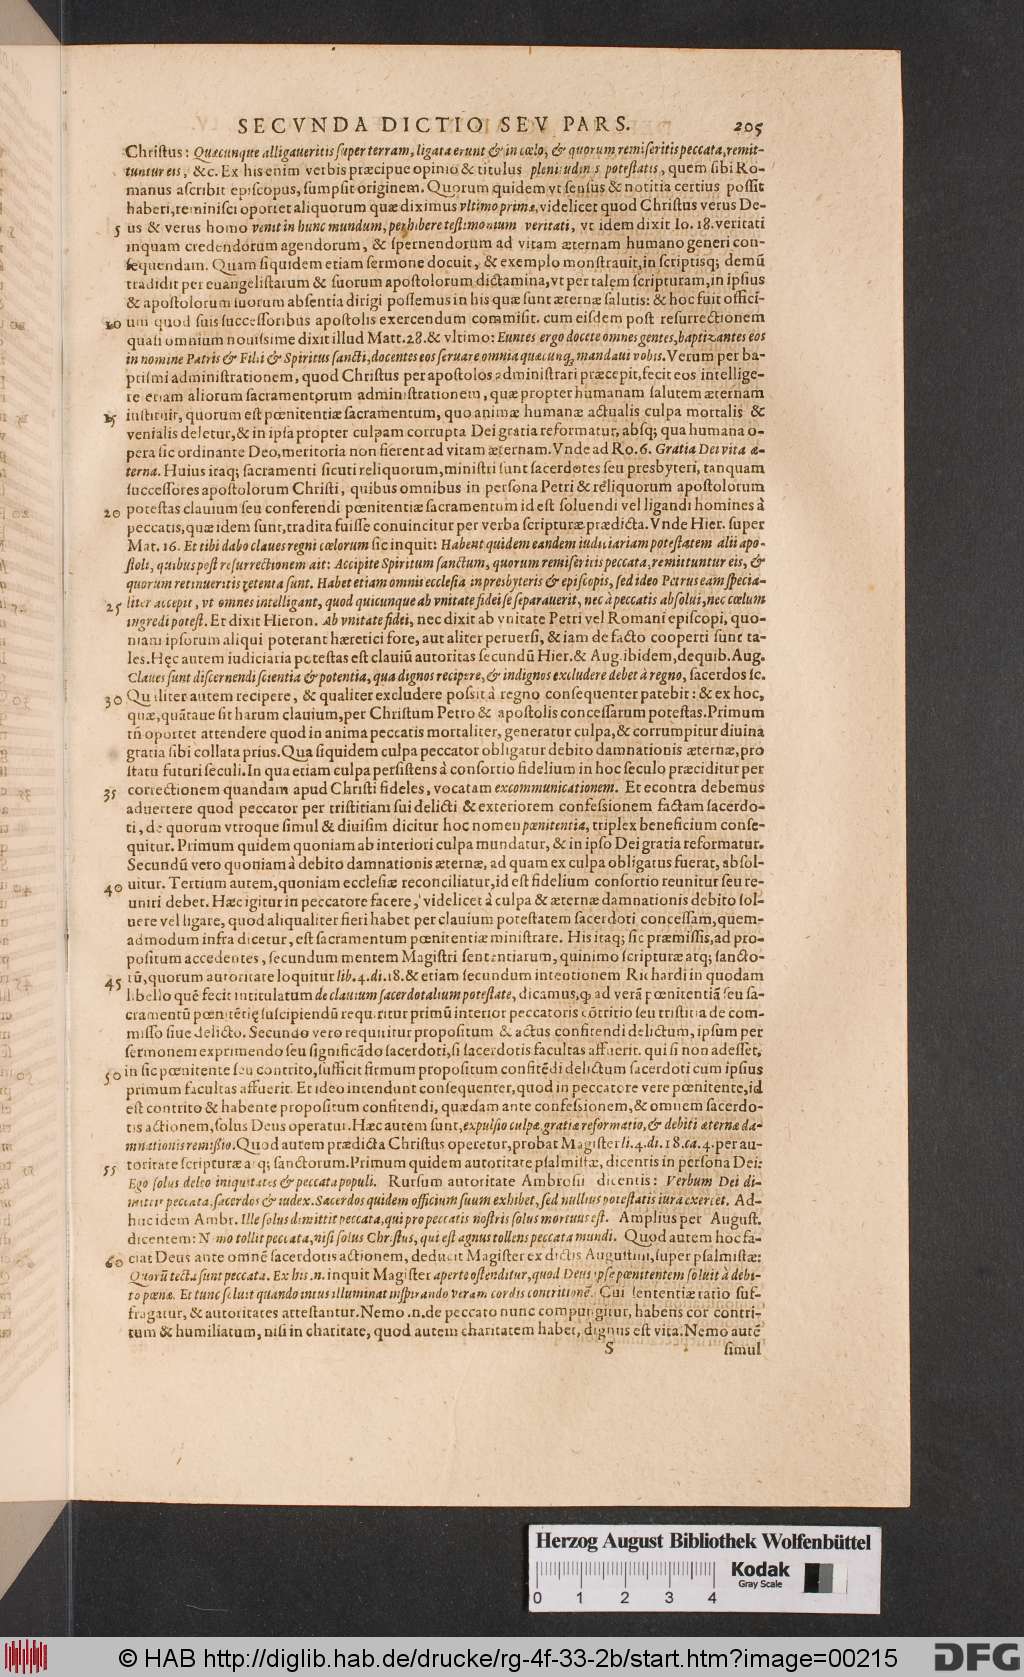 SECVNDA DICTIO SEV PARS. 205
Christus: Quæcunque alligaueritis super terram, ligata erunt & in cœlo, & quorum remiseritis peccata, remit-
tuntur eis, &c. Ex his enim verbis præcipue opinio & titulus plenitudinis potestatis, quem sibi Ro-
manus ascribit episcopus, sumpsit originem. Quorum quidem vt sensus & notitia certius possit
haberi, reminisci oportet aliquorum quæ diximus vltimo primæ, videlicet quod Christus verus De-
5 us & verus homo venit in hunc mundum, perhibere testimonium veritati, vt idem dixit Io. 18. veritati
inquam credendorum agendorum, & spernendorum ad vitam æternam humano generi con-
sequendam. Quam siquidem etiam sermone docuit, & exemplo monstrauit, in scriptisq; demũ
tradidit per euangelistarum & suorum apostolorum dictamina, vt per talem scripturam, in ipsius
& apostolorum suorum absentia dirigi possemus in his quæ sunt æternæ salutis: & hoc fuit offici-
10 um quod suis successoribus apostolis exercendum commisit. cum eisdem post resurrectionem
quasi omnium nouissime dixit illud Matt. 28. & vltimo: Euntes ergo docete omnes gentes, baptizantes eos
in nomine Patris & Filii & Spiritus sancti, docentes eos seruare omnia quæcunq; mandaui vobis. Verum per ba-
ptismi administrationem, quod Christus per apostolos administrari præcepit, fecit eos intellige-
re etiam aliorum sacramentorum administrationem, quæ propter humanam salutem æternam
15 instituit, quorum est pœnitentiæ sacramentum, quo animæ humanæ actualis culpa mortalis &
venialis deletur, & in ipsa propter culpam corrupta Dei gratia reformatur, absq; qua humana o-
pera sic ordinante Deo, meritoria non fierent ad vitam æternam. Vnde ad Ro. 6. Gratia Dei vita æ-
terna. Huius itaq; sacramenti sicuti reliquorum, ministri sunt sacerdotes seu presbyteri, tanquam
successores apostolorum Christi, quibus omnibus in persona Petri & reliquorum apostolorum
20 potestas clauium seu conferendi pœnitentiæ sacramentum id est soluendi vel ligandi homines à
peccatis, quæ idem sunt, tradita fuisse conuincitur per verba scripturæ prædicta. Vnde Hier. super
Mat. 16. Et tibi dabo claues regni cœlorum sic inquit: Habent quidem eandem iudiciariam potestatem alii apo-
stoli, quibus post resurrectionem ait: Accipite Spiritum sanctum, quorum remiseritis peccata, remittuntur eis, &
quorum retinueritis retenta sunt. Habet etiam omnis ecclesia in presbyteris & episcopis, sed ideo Petrus eam specia-
25 liter accepit, vt omnes intelligant, quod quicunque ab vnitate fidei se separauerit, nec à peccatis absolui, nec cœlum
ingredi potest. Et dixit Hieron. Ab vnitate fidei, nec dixit ab vnitate Petri vel Romani episcopi, quo-
niam ipsorum aliqui poterant hæretici fore, aut aliter peruersi, & iam de facto cooperti sunt ta-
les. Hęc autem iudiciaria potestas est clauiũ autoritas secundũ Hier. & Aug. ibidem, de quib. Aug.
Claues sunt discernendi scientia & potentia, qua dignos recipere, & indignos excludere debet à regno, sacerdos sc.
30 Qualiter autem recipere, & qualiter excludere possit à regno consequenter patebit: & ex hoc,
quæ, quãtaue sit harum clauium, per Christum Petro & apostolis concessarum potestas. Primum
tñ oportet attendere quod in anima peccatis mortaliter, generatur culpa, & corrumpitur diuina
gratia sibi collata prius. Qua siquidem culpa peccator obligatur debito damnationis æternæ, pro
statu futuri seculi. In qua etiam culpa persistens à consortio fidelium in hoc seculo præciditur per
35 correctionem quandam apud Christi fideles, vocatam excommunicationem. Et econtra debemus
aduertere quod peccator per tristitiam sui delicti & exteriorem confessionem factam sacerdo-
ti, de quorum vtroque simul & diuisim dicitur hoc nomen pœnitentia, triplex beneficium conse-
quitur. Primum quidem quoniam ab interiori culpa mundatur, & in ipso Dei gratia reformatur.
Secundũ vero quoniam à debito damnationis æternæ, ad quam ex culpa obligatus fuerat, absol-
40 uitur. Tertium autem, quoniam ecclesiæ reconciliatur, id est fidelium consortio reunitur seu re-
uniri debet. Hæc igitur in peccatore facere, videlicet à culpa & æternæ damnationis debito sol-
uere vel ligare, quod aliqualiter fieri habet per clauium potestatem sacerdoti concessam, quem-
admodum infra dicetur, est sacramentum pœnitentiæ ministrare. His itaq; sic præmissis, ad pro-
positum accedentes, secundum mentem Magistri sententiarum, quinimo scripturæ atq; sancto-
45 rũ, quorum autoritate loquitur lib. 4. di. 18. & etiam secundum intentionem Richardi in quodam
libello quẽ fecit intitulatum de clauium sacerdotalium potestate, dicamus, q̨ ad verã pœnitentiã seu sa-
cramentũ pœnitẽtię suscipiendũ requiritur primũ interior peccatoris cõtritio seu tristitia de com-
misso siue delicto. Secundo vero requiritur propositum & actus confitendi delictum, ipsum per
sermonem exprimendo seu significãdo sacerdoti, si sacerdotis facultas affuerit. qui si non adesset,
50 in sic pœnitente seu contrito, sufficit firmum propositum confitẽdi delictum sacerdoti cum ipsius
primum facultas affuerit. Et ideo intendunt consequenter, quod in peccatore vere pœnitente, id
est contrito & habente propositum confitendi, quædam ante confessionem, & omnem sacerdo-
tis actionem, solus Deus operatur. Hæc autem sunt, expulsio culpæ gratiæ reformatio, & debiti æternæ da-
mnationis remissio. Quod autem prædicta Christus operetur, probat Magister li. 4. di. 18. ca. 4. per au-
55 toritate scripturæ atq; sanctorum. Primum quidem autoritate psalmistæ, dicentis in persona Dei:
Ego solus deleo iniquitates & peccata populi. Rursum autoritate Ambrosii dicentis: Verbum Dei di-
mittit peccata, sacerdos & iudex. Sacerdos quidem officium suum exhibet, sed nullius potestatis iura exercet. Ad-
huc idem Ambr. Ille solus dimittit peccata, qui pro peccatis nostris solus mortuus est. Amplius per August.
dicentem: Nemo tollit peccata, nisi solus Christus, qui est agnus tollens peccata mundi. Quod autem hoc fa-
60 ciat Deus ante omnẽ sacerdotis actionem, deducit Magister ex dictis Augustini, super psalmistæ:
Quorũ tecta sunt peccata. Ex his .n. inquit Magister aperte ostenditur, quod Deus ipse pœnitentem soluit à debi-
to pœnæ. Et tunc soluit quando intus illuminat inspirando veram cordis contritionẽ. Cui sententiæ ratio suf-
fragatur, & autoritates attestantur. Nemo .n. de peccato nunc compungitur, habens cor contri-
tum & humiliatum, nisi in charitate, quod autem charitatem habet, dignus est vita. Nemo autẽ
S simul
Herzog August Bibliothek Wolfenbüttel
Kodak
Gray Scale
0 1 2 3 4
© HAB http://diglib.hab.de/drucke/rg-4f-33-2b/start.htm?image=00215
DFG